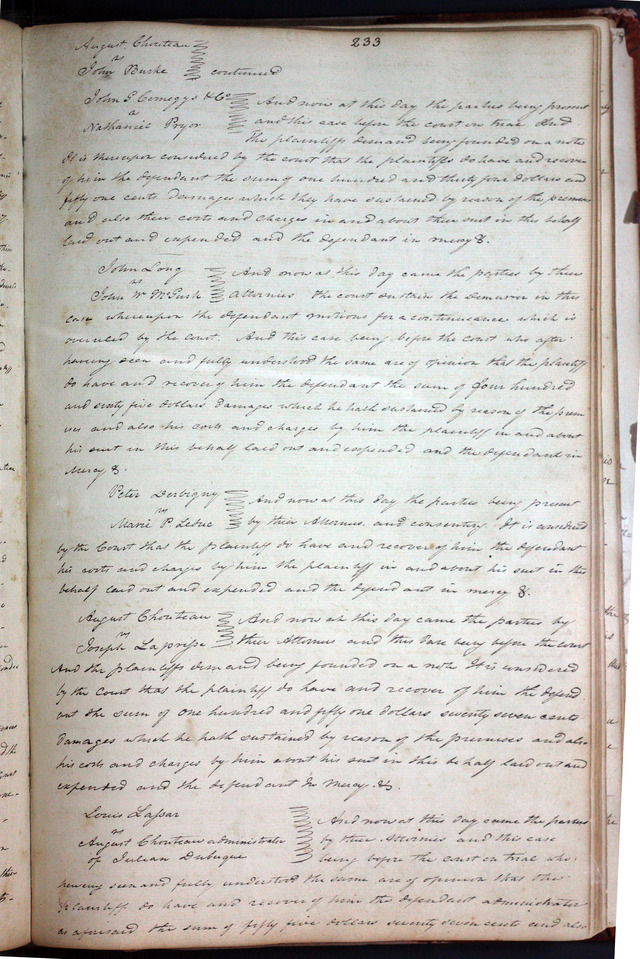 233
August Chouteau
vs
John Burke continued
John G Comegys & Co
vs
Nathaniel Pryor
And now at this day the parties being present
and this case before the court on trial And
The plaintiffs demand being founded on a note
It is thereupon considered by the court that the plaintiffs do have and recover
of him the defendant the sum of one hundred and thirty four dollars and
fifty one cents damages which they have sustained by reason of the premises
and also their costs and charges in and about their suit in this behalf
laid out and expended and the defendant in mercy &.
John Long
vs
John W McGirk
And now at this day came the parties by their
Attornies the court sustain the demurrer in this
case whereupon the defendant motions for a continuance which is
overuled by the court. And this case being before the court who after
having seen and fully understood the same are of opinion that the plaintiff
do have and recover of him the defendant the sum of four hundred
and sixty five dollars damages which he hath sustained by reason of the prem
ises and also his costs and charges by him the plaintiff in and about
his suit in this behalf laid out and expended and the defendant in
Mercy &.
Peter Derbigny
vs
Marie P. Leduc
And now at this day the parties being present
by their Attornies and consenting It is considered
by the Court that the plaintiff do have and recover of him the defendant
his costs and charges by him the plaintiff in and about his suit in this
behalf laid out and expended and the defendant in mercy &.
August Chouteau
vs
Joseph Laprise
And now at this day came the parties by
their Attornies and this Case being before the court
And the plaintiffs demand being founded on a note It is considered
by the Court that the plaintiff do have and recover of him the defend
ant the sum of one hundred and fifty one dollars seventy seven cents
damages which he hath sustained by reason of the premises and also
his costs and charges by him about his suit in this behalf laid out and
expended and the defendant In mercy &.
Louis Lassar
vs
August Chouteau administrator
of Julian Dubuque
And now at this day came the parties
by their Attornies and this case
being before the court on trial who
having seen and fully understood the same are of opinion that the
plaintiff do have and recover of him the defendant administrator
as aforesaid the sum of fifty five dollars seventy seven cents and also